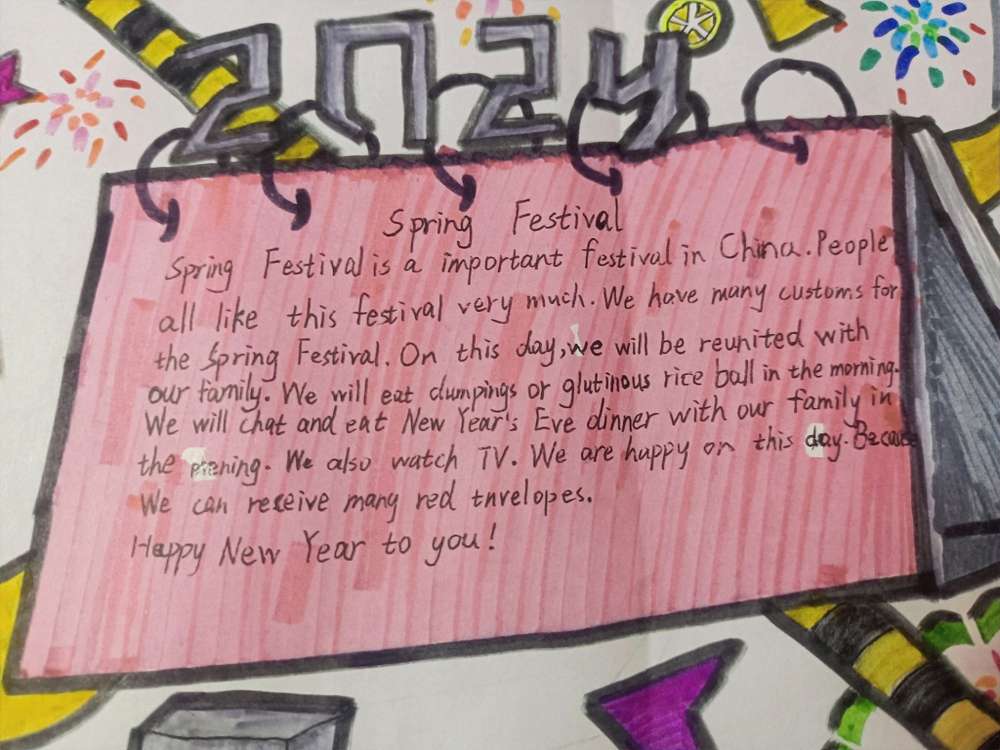 2024
Spring Festival
Spring Festival is a important festival in China. People
all like this festival very much. We have many customs for
the Spring Festival. On this day, we will be reunited with
our family. We will eat dumpings or glutinous rice ball in the morning.
We will chat and eat New Year's Eve dinner with our family in
the evening. We also watch TV. We are happy on this day. Because
We can receive many red tnvelopes.
Happy New Year to you!